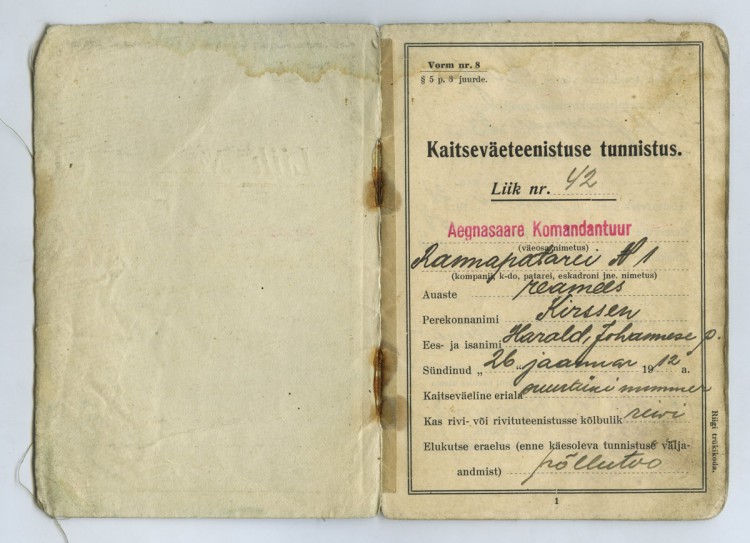 Vorm nr. 8
§ 5 p. 3 juurde.
Kaitseväeteenistuse tunnistus.
Liik nr. 42
Aegnasaare Komandantuur
(väeosa nimetus)
Rannapatarei № 1
(kompanii, k-do, patarei, eskadroni jne. nimetus)
Auaste reamees
Perekonnanimi Kirssen
Ees- ja isanimi Harald, Johannese p.
Sündinud „26 “ jaanuar 1912 a.
Kaitseväeline eriala nummer
Kas rivi- või rivituteenistusse kõlbulik riwi
Elukutse eraelus (enne käesoleva tunnistuse välja-
andmist) põllutöö
Riigi trükikoda.
1